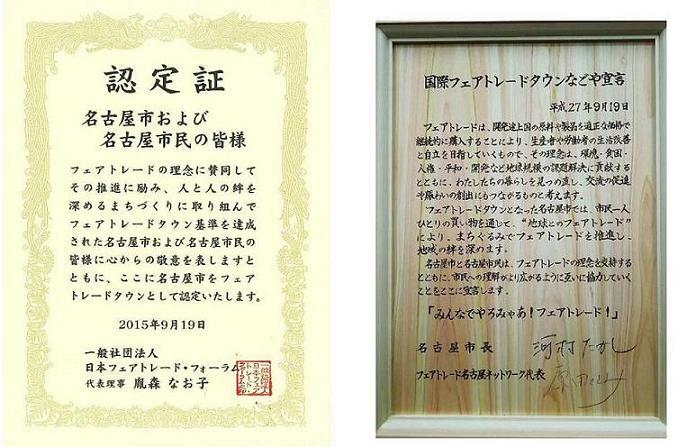 認定証
名古屋市および
名古屋市民の皆様
フェアトレードの理念に賛同して
その推進に励み、人と人の絆を
深めるまちづくりに取り組んで
フェアトレードタウン基準を達成
された名古屋市および名古屋市民の
皆様に心からの敬意を表しますと
ともに、ここに名古屋市をフェア
トレードタウンとして認定いたします。
2015年9月19日
一般社団法人
日本フェアトレード・フォーラム
代表理事 胤森 なお子
国際フェアトレードタウンなごや宣言
平成27年9月19日
フェアトレードは、開発途上国の原料や製品を適正な価格で
継続的に購入することにより、生産者や労働者の生活改善
と自立を目指していくもので、その理念は、環境・貧困・
人権・平和・開発など地球規模の課題解決に貢献する
とともに、わたしたちの暮らしを見つめ直し、交流の促進
や賑わいの創出にもつながるものと考えます。
フェアトレードタウンとなった名古屋市では、市民一人
ひとりの買い物を通して、“地球とのフェアトレード”
により、まちぐるみでフェアトレードを推進し、
地域の絆を深めます。
名古屋市と名古屋市民は、フェアトレードの理念を支持する
とともに、市民への理解がより広がるように互いに協力していく
ことをここに宣言します。
「みんなでやろみゃあ！フェアトレード！」
名古屋市長 河村たかし
フェアトレード名古屋ネットワーク代表